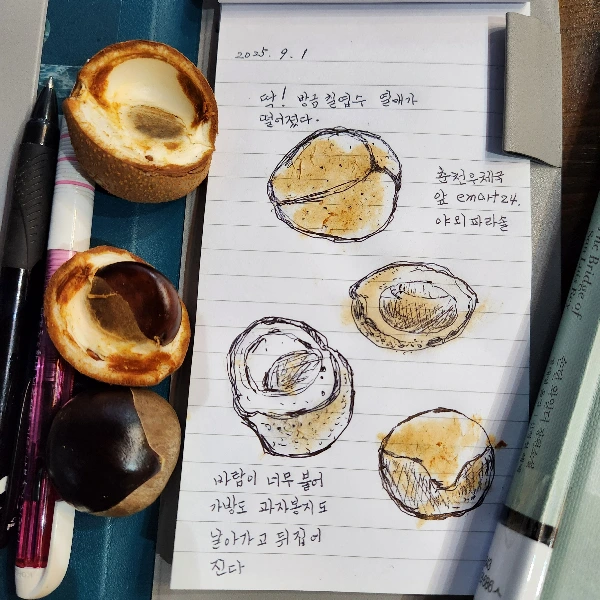 2025. 9. 1
딱! 방금 칠엽수 열매가
떨어졌다.
춘천우체국
앞 emart24.
야외파라솔
바람이 너무 불어
가방도 과자봉지도
날아가고 뒤집어
진다
The Bridge of